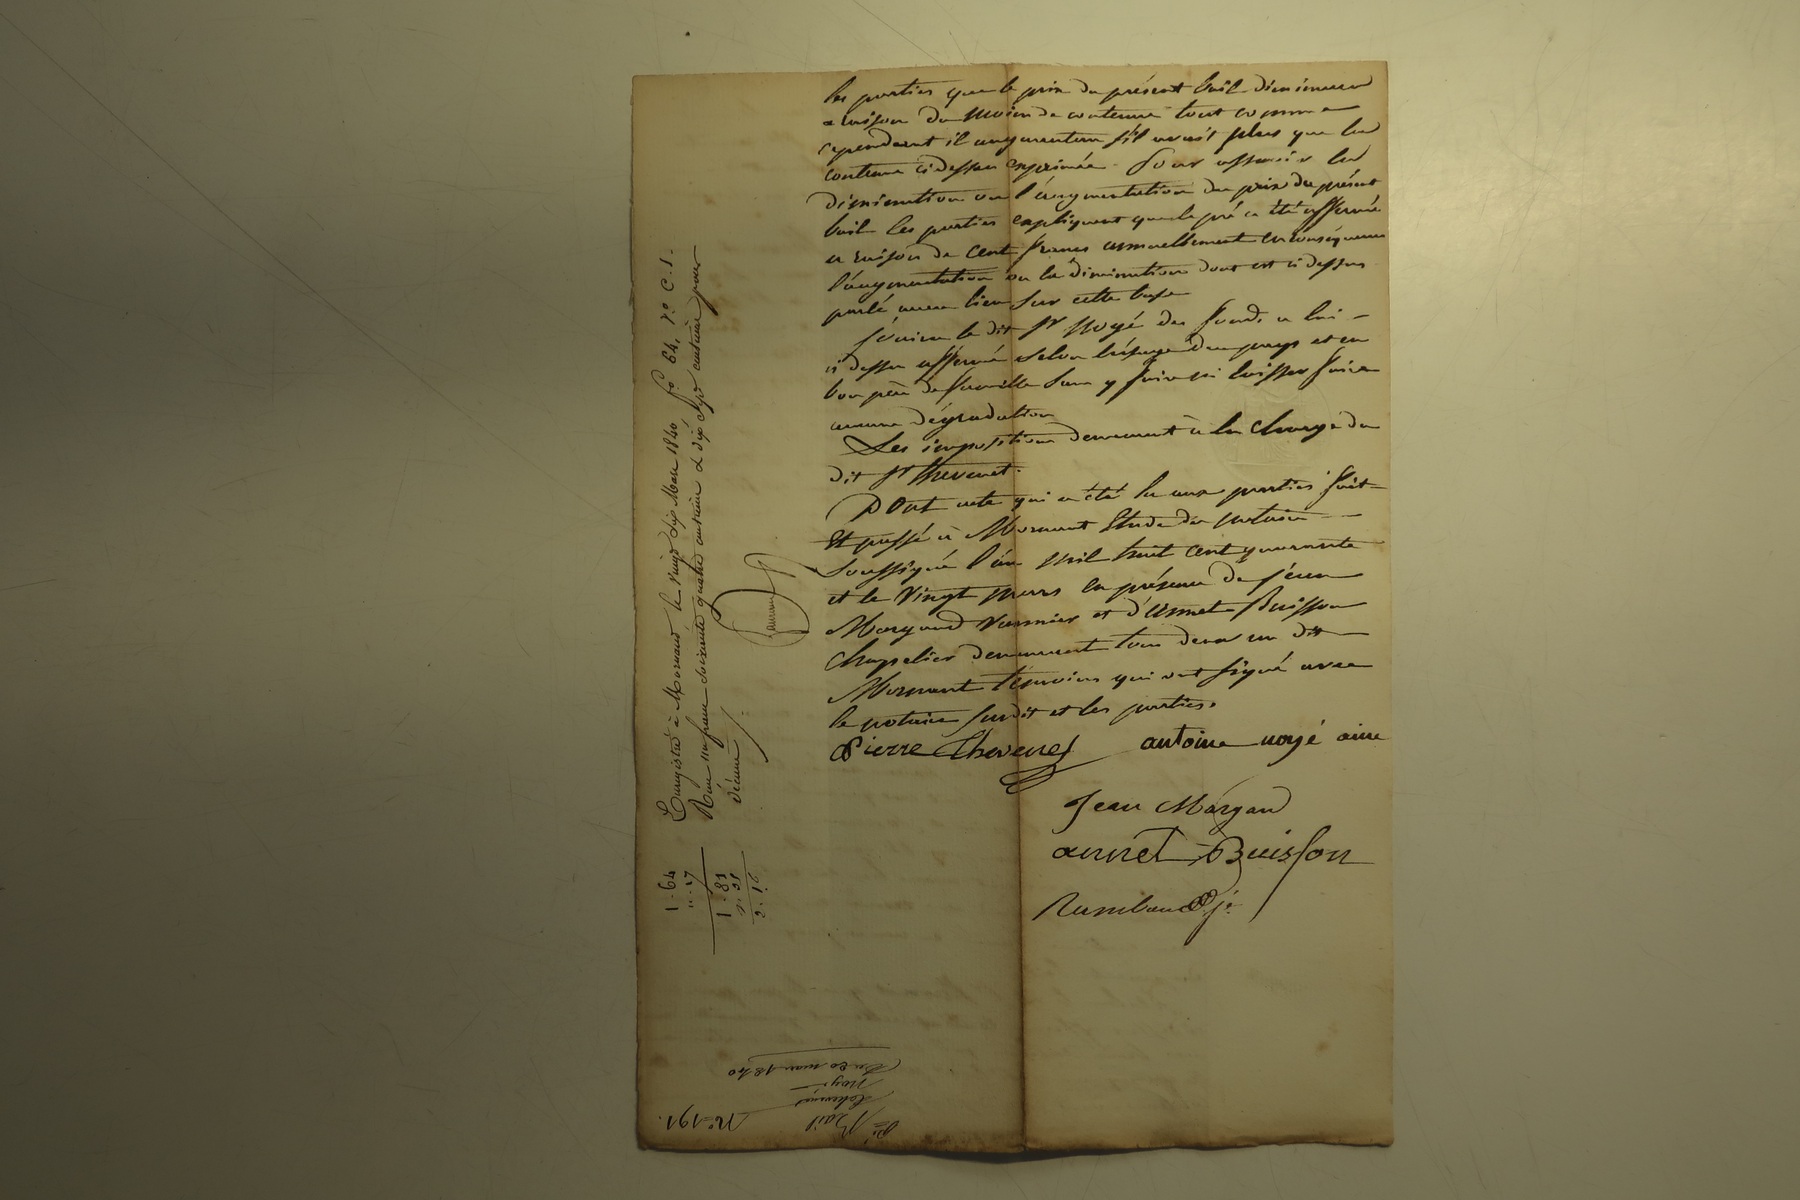 les parties que le prix du présent bail diminuera
a raison du moins de contenue tout comme
cependant il augmentera s'il avait plus que la
contenue ci dessus exprimée. Pour asseoir la
diminution ou l'augmentation du prix du présent
bail les parties expliquent que le pré a été affermé
a raison de cent francs annuellement en conséquence
l'augmentation ou la diminution dont est ci dessus
parlé aura lieu sur cette base
Jouira le dit Sr Noyé des fonds a lui
ci dessus affermé selon l'usage du pays et en
bon père de famille sans y faire ni laisser faire
aucune dégradation
Les impositions demeurent à la charge du
dit Sr Thevenet.
Dont acte qui a été lu aux parties fait
et passé à Mornant Etude du notaire
soussigné l'an mil huit cent quarante
et le vingt mars en présence de Jean
Margand et d'Annet Buisson
Chapelier demeurant tous deux au dit
Mornant témoins qui ont signé avec
le notaire susdit et les parties.
Pierre Thevenet antoine noyé
Jean Margan
annet Buisson
Enregistré à Mornant le vingt six Mars 1840 fo 64, ro C. 1.
Reçu un franc soixante quatre centimes & dix sept centimes pour
décime
1.64
".17
1.81
2.16
No 191.
Bail
Thevenet
Noyé
Du 20 mars 1840